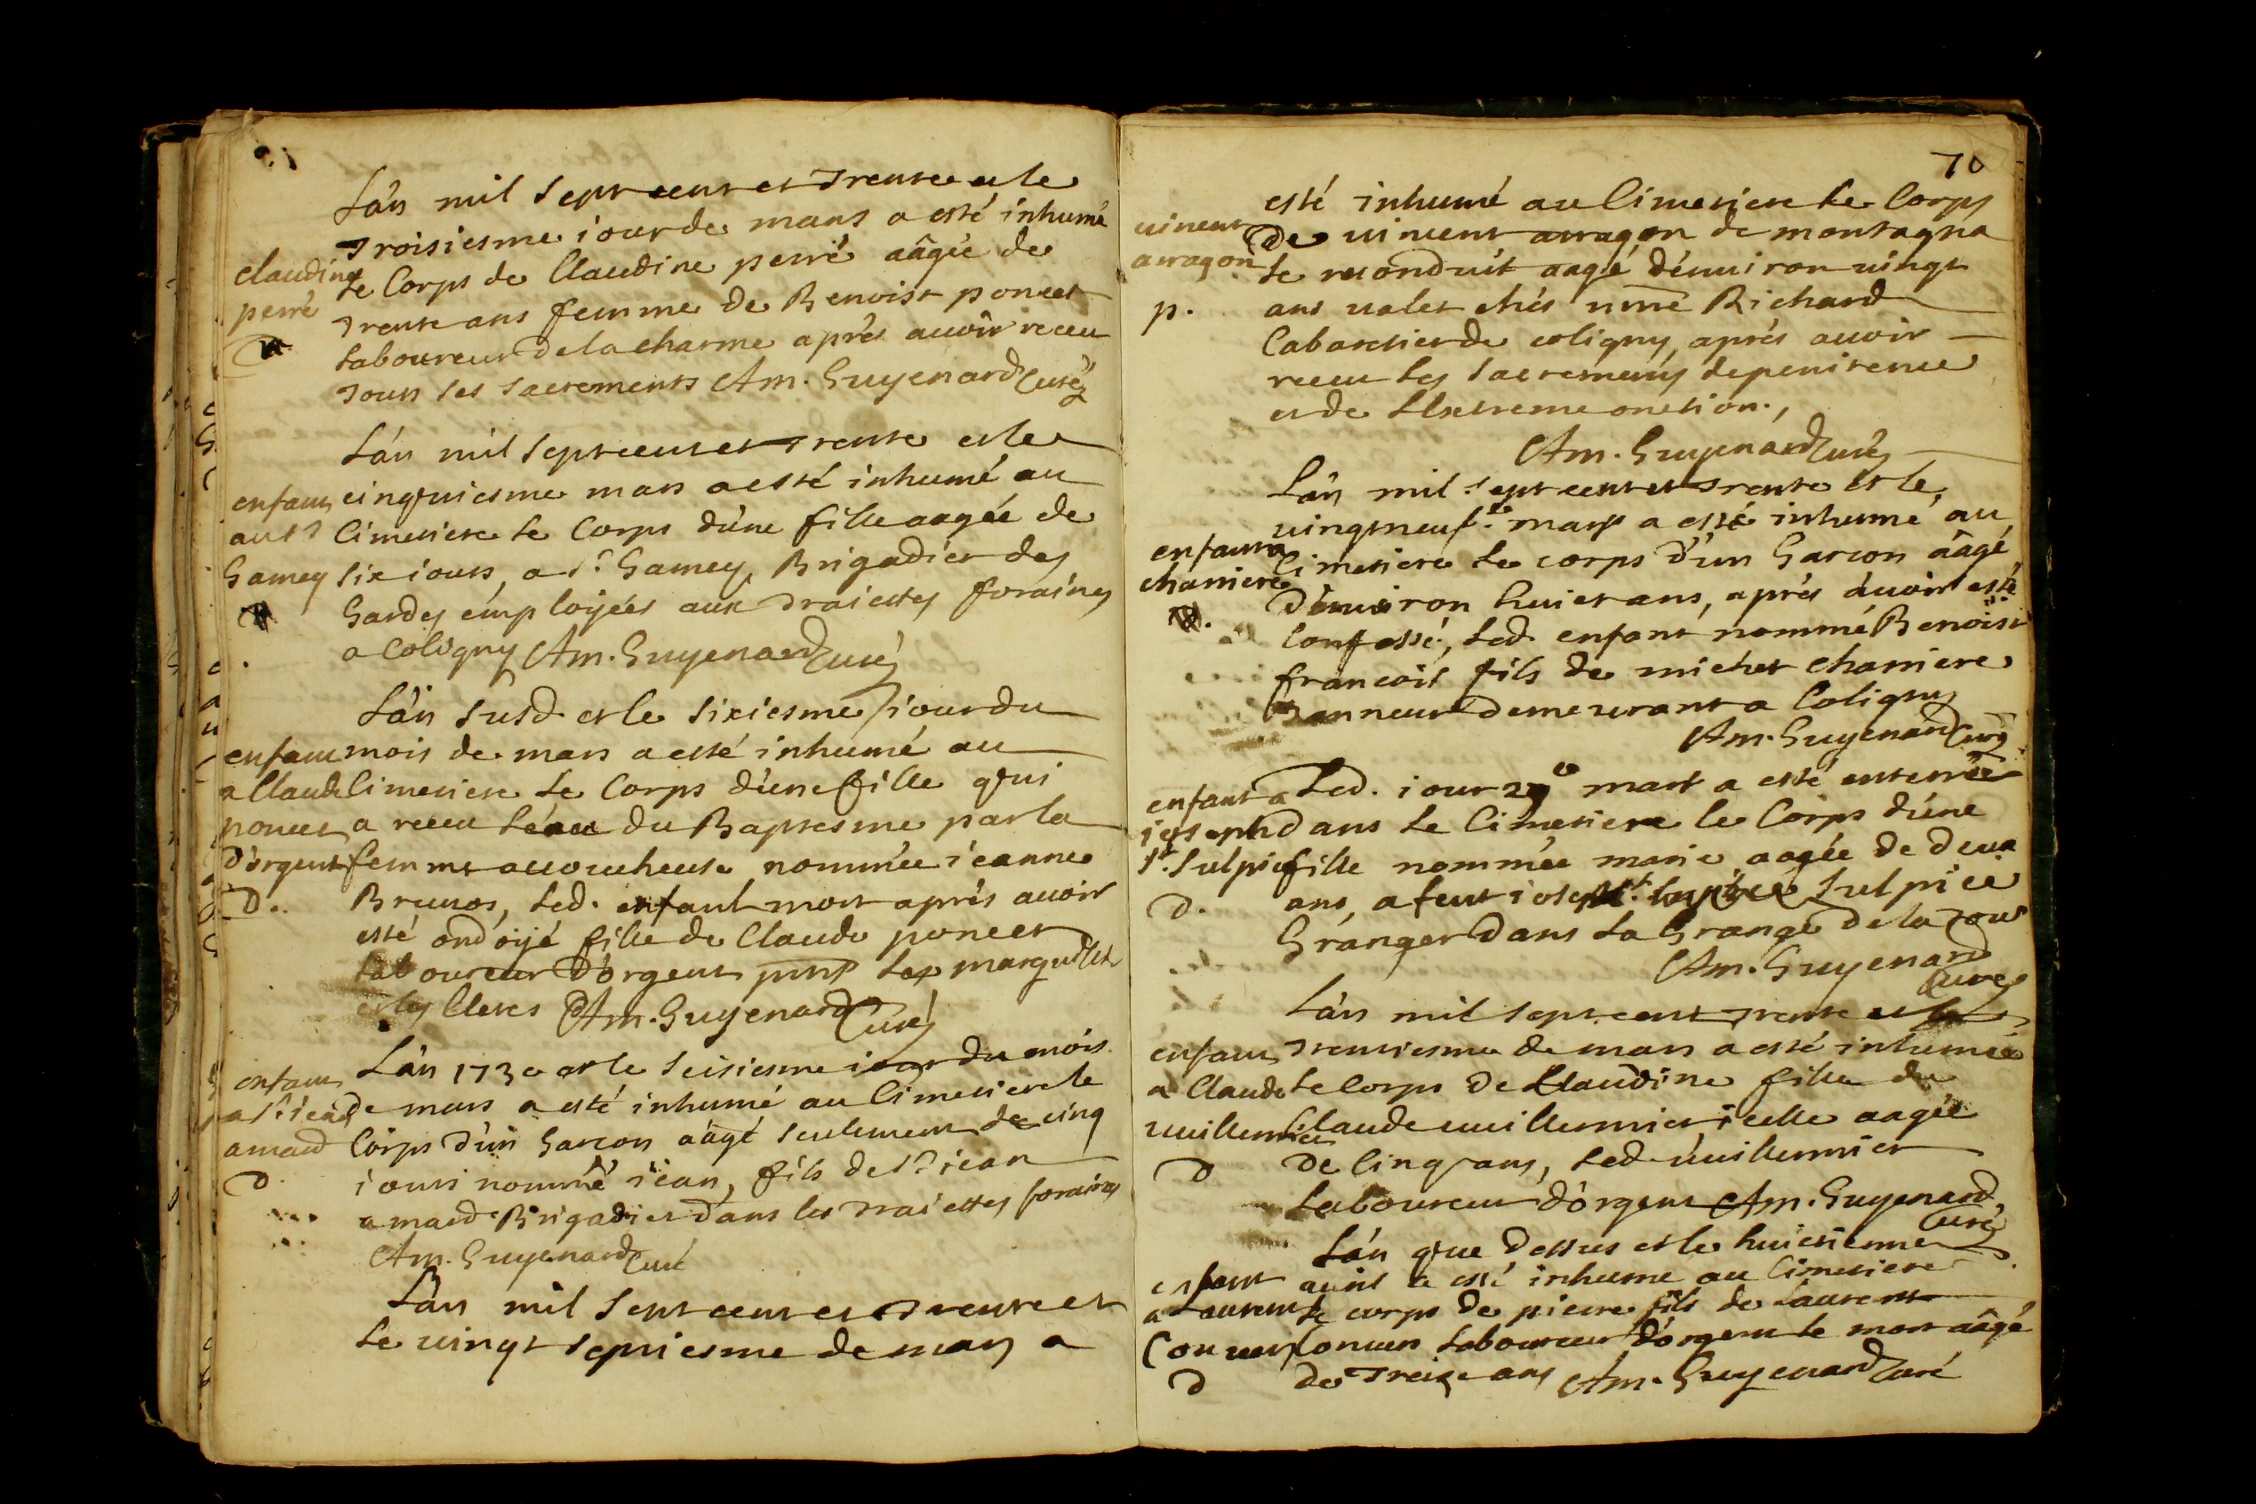 L'an mil sept cent et trente et le
troisiesme iour de mars a esté inhumé
claudine
perré
le Corps de Claudine perré aâgée de
trente ans femme de Benoist poncet
laboureur de la charme aprés auoir receu
tous ses sacrements Am. Guyenard Curé
L'an mil sept cent et trente et le
enfant
au Sr
Gamey
cinquiesme mars a esté inhumé au
Cimetiere le Corps d'une fille aagée de
six iours, a Sr. Gamey, Brigadier des
Gardes employées aux traittes foraines
a Coligny Am. Guyenard Curé
L'an susd. et le sixiesme iour du
enfant
a Claude
poncet
d'orgent
D.
mois de mars a esté inhumé au
Cimetiere le Corps d'une fille qui
a receu l'eau du Baptesme par la
femme accoucheuse nommée ieanne
Brunos, led. enfant mort aprés auoir
esté ondoÿé fille de Claude poncet
laboureur d'orgent les
et les Clercs Am. Guyenard Curé
L'an 1730 et le seisiesme iour du mois
enfant
a Sr iean
amard
D.
de mars a esté inhumé au Cimetiere le
Corps d'un Garcon aâgé seulement de cinq
iours nommé iean, fils de Sr iean
amard Brigadier dans les traittes foraines
Am. Guyenard Curé
L'an mil sept cent et trente et
le vingt septiesme de mars a
70
esté inhumé au Cimetiere le Corps
uincent
arragon
p.
de uincent arragon de montagna
le reconduit aagé d'enuiron uingt
ans ualet chés Richard
Cabaretier de coligny, aprés auoir
receu les sacrements de penitence
et de l'extreme onction.,
Am. Guyenard Curé
L'an mil sept cent et trente et le
uingtneufe. mars a esté inhumé au
enfant a
charriere
Cimetiere le corps d'un Garcon aâgé
d'enuiron huict ans, aprés auoir esté
Confessé, led. enfant nommé Benoist
francois fils de michet charriere
demeurant a Coligny
Am. Guyenard Curé
enfant a
ioseph
St. Sulpice
D.
Led. iour 29e mars a esté enterrée
dans le Cimetiere le Corps d'une
fille nommée marie aagée de deux
ans, a feut ioseph Sulpice
Granger dans la Grange de la tour
Am. Guyenard
Curé
L'an mil sept cent trente et le
enfant
a Claude
uuillermier
D
trentiesme de mars a esté inhumée
le Corps de Claudine fille de
Claude uuillermier icelle aagée
de Cinq ans, led. uuillermier
Laboureur d'orgent Am. Guyenard
Curé
L'an que dessus et le huictienne
enfant
a Laurent
Conuers
D
auril a esté inhume au Cimetiere
le corps de pierre fils de Laurent
Conuers Laboureur d'orgent le mort aâgé
de treize ans Am. Guyenard Curé